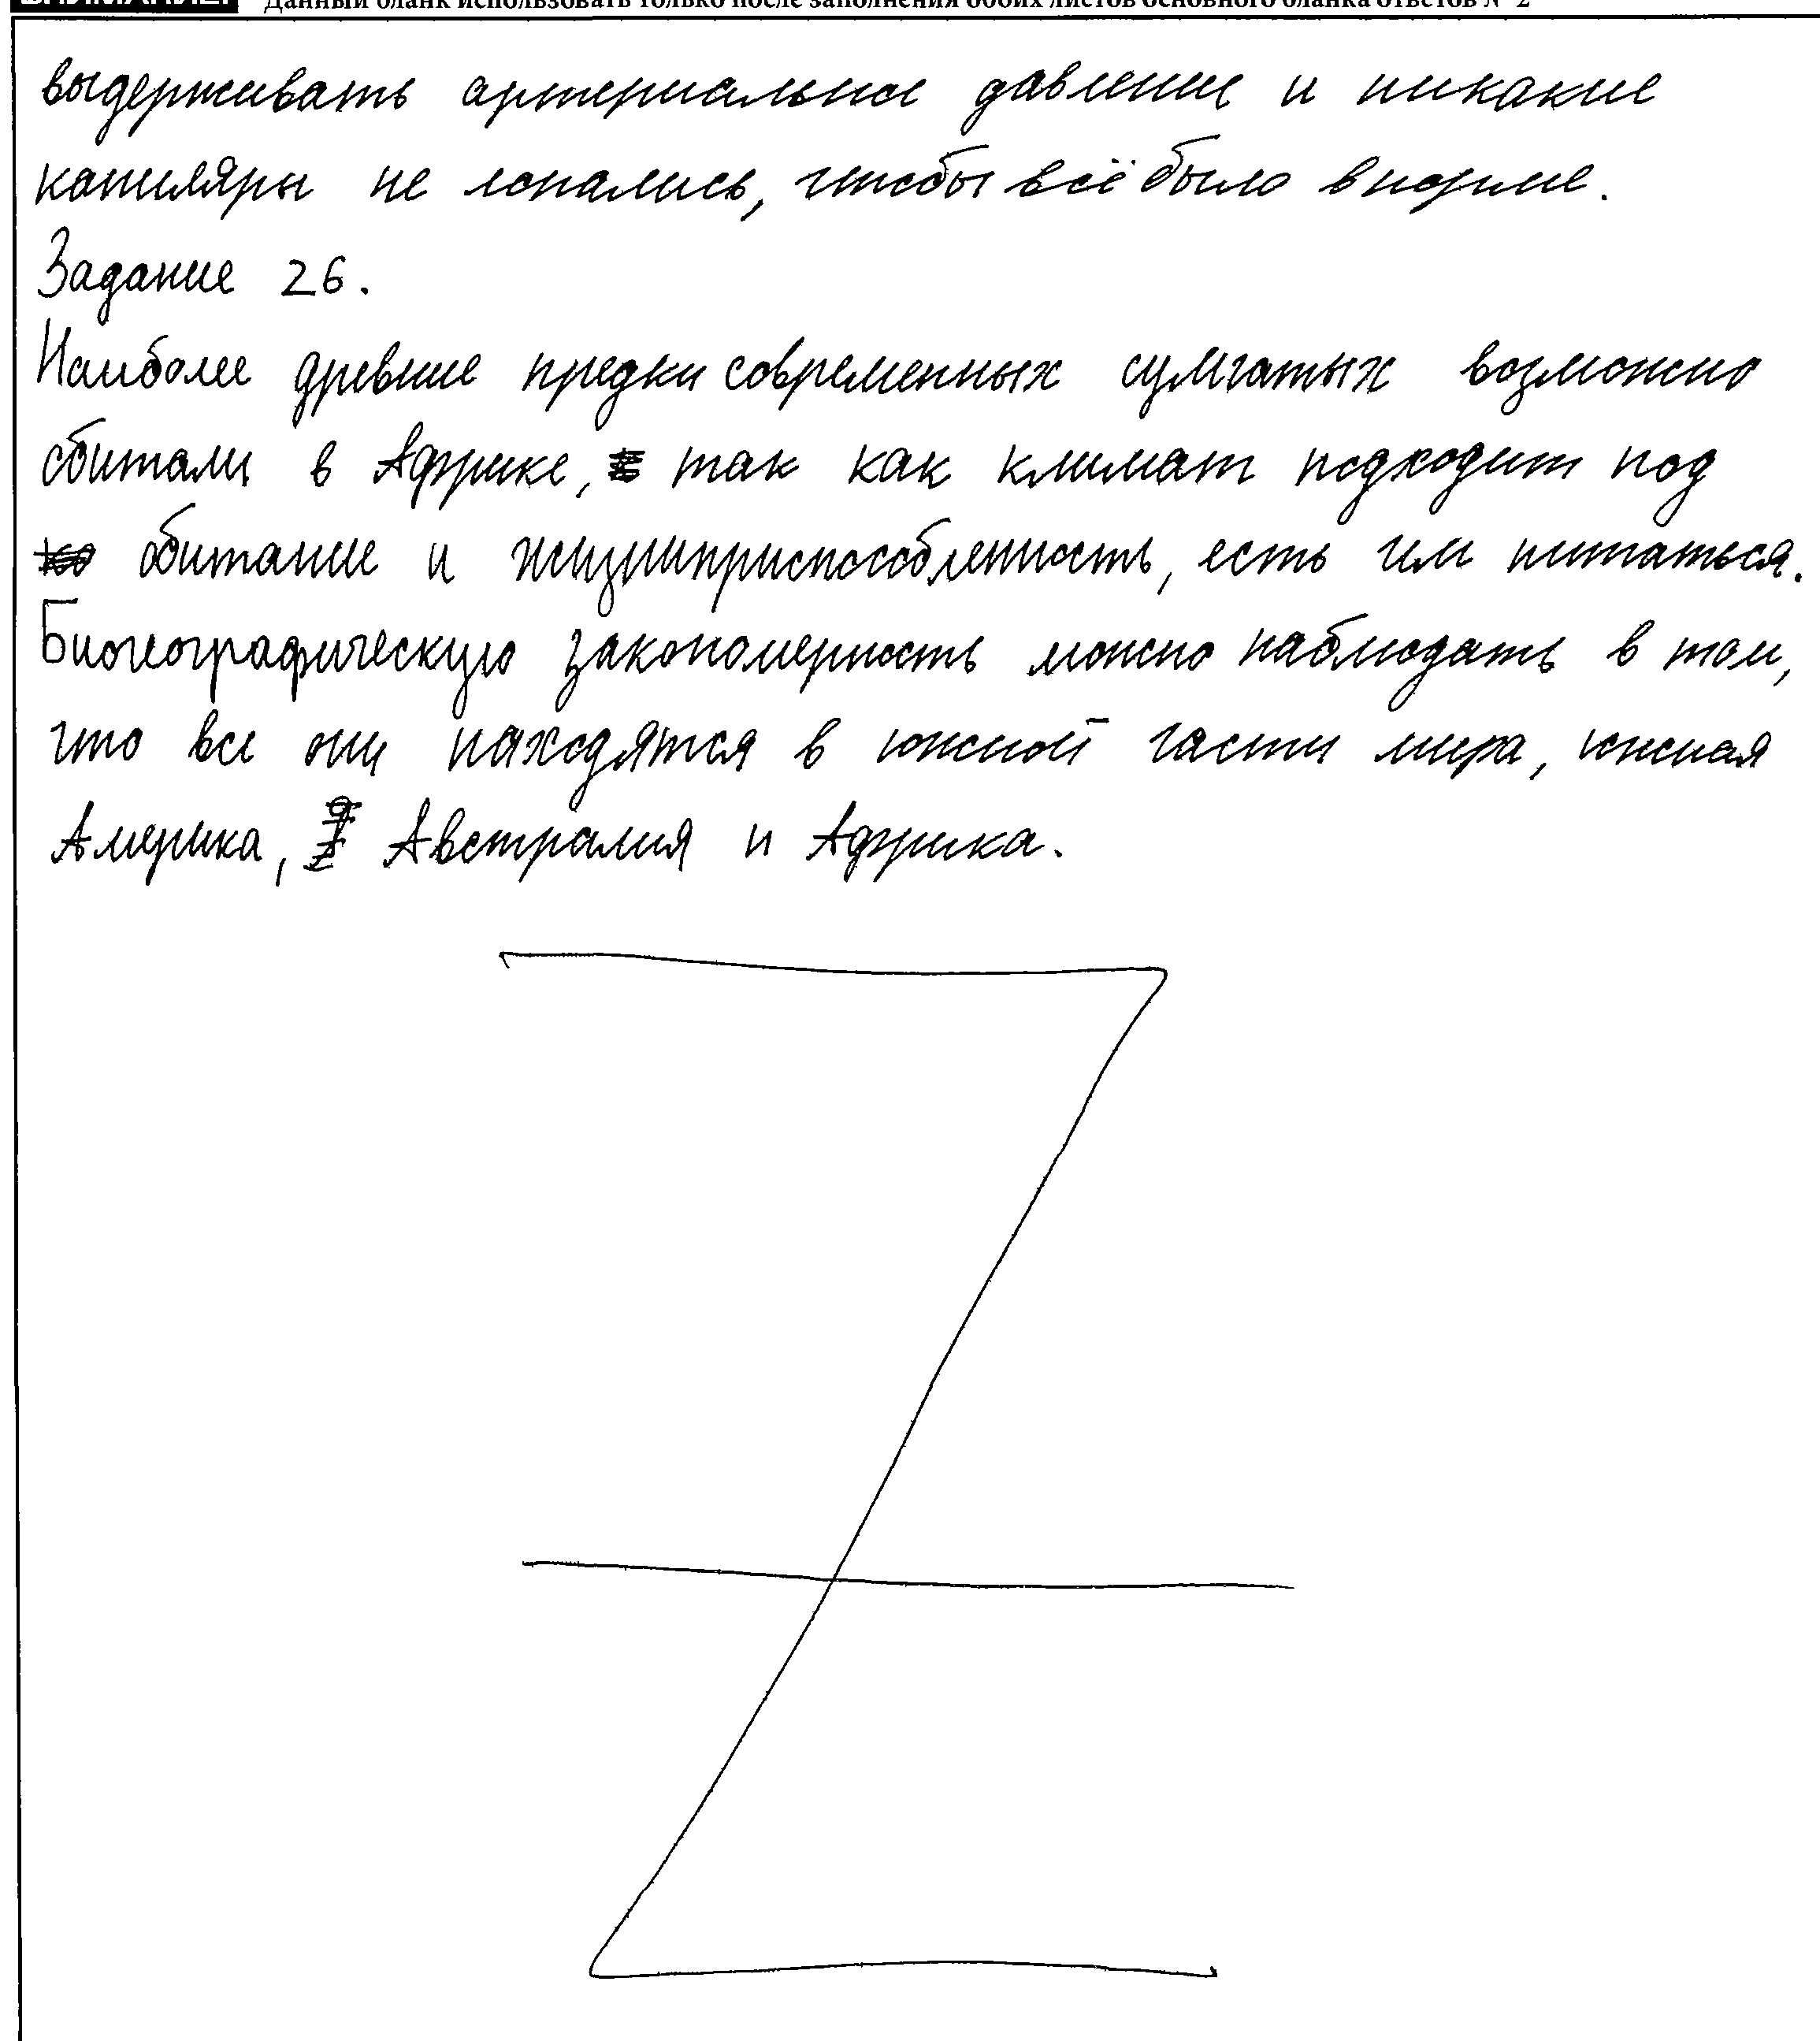 Данный бланк использовать только после заполнения обоих листов основного бланка ответов № 2
выдерживать артериальное давление и никакие
капиляры не лопались, чтобы всё было в норме.
Задание 26.
Наиболее древние предки современных сумчатых возможно
обитали в Африке, так как климат подходит под
обитание и жизниприспособленность, есть чем питаться.
Биогеографическую закономерность можно наблюдать в том,
что все они находятся в южной части мира, южная
Америка, Австралия и Африка.